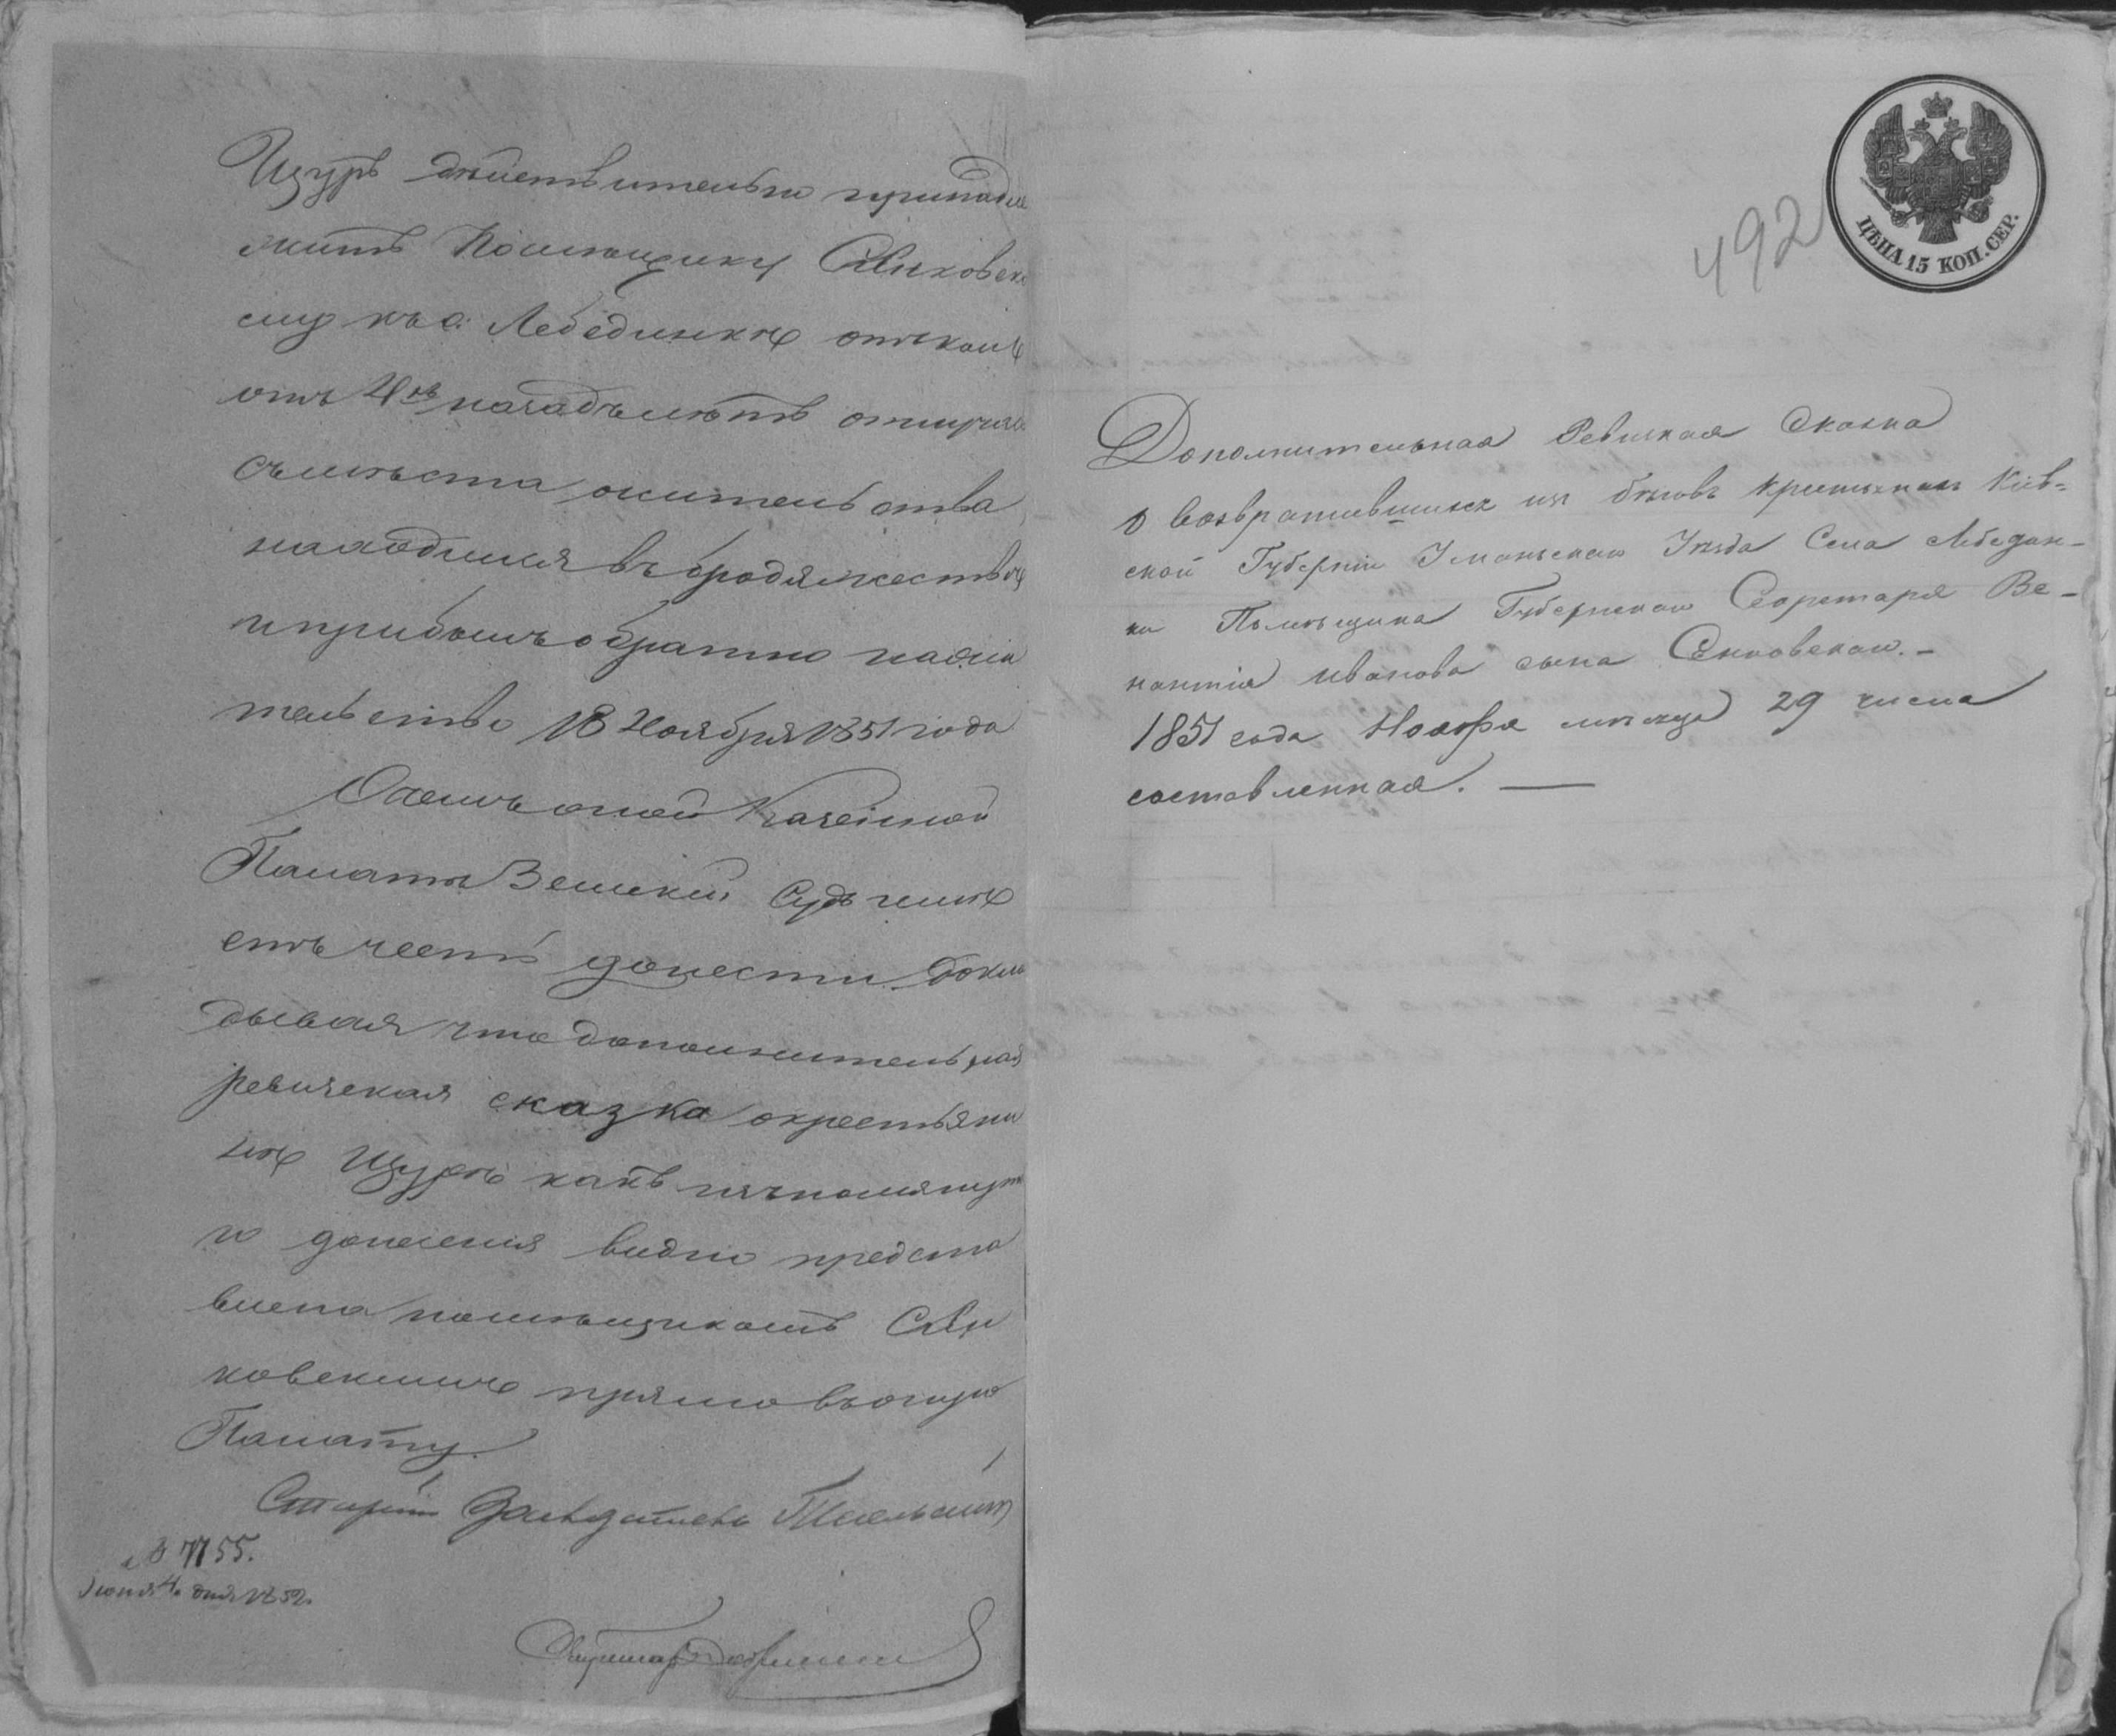 Щуръ дѣйствительно принадле
житъ помѣщику Сѣнковск
му въ с. Лебединкѣ
отъ 4хъ
съ мѣста жительства
находился въ бродяжествѣ
и прибылъ обратно на жи
тельство 18 Ноября 1851 года
О чемъ оной Казенной
Палатѣ Земскій Судъ имѣ
етъ честь донести докла
дывая что дополнительная
ревизская сказка о крестьяни
нѣ Щурѣ какъ изъ помянута
го донесенія видно предста
влена помѣщикомъ Сѣн
ковскимъ прямо въ оную
Палату.
Старшій Засѣдатель
№ 7755.
Іюня 4 дня 1852.
492
ЦѢНА 15 КОП. СЕР.
Дополнительная Ревизкая Сказка
о возвратившихся изъ бѣговъ крестьянахъ Кіев-
ской Губерніи Уманскаго Уѣзда Села Лебедин-
ки Помѣщика Губернскаго Секретаря Ве-
нантія Иванова сына Сѣнковскаго.-
1851 года Ноября мѣсяца 29 числа
составленная. —